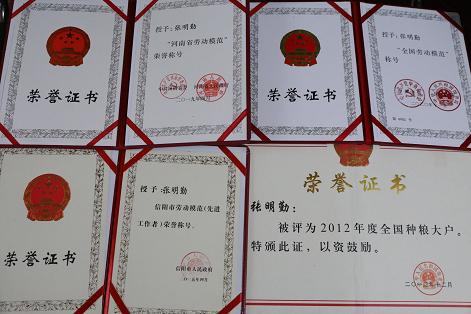 荣誉证书
授予:张明勤
“河南省劳动模范”
荣誉称号
荣誉证书
授予:张明勤
“全国劳动模范”
称号
荣誉证书
授予:张明勤
信阳市劳动模范(先进
工作者)荣誉称号。
信阳市人民政府
荣誉证书
张明勤:
被评为2012年度全国种粮大户。
特颁此证,以资鼓励。
二〇一二年十二月